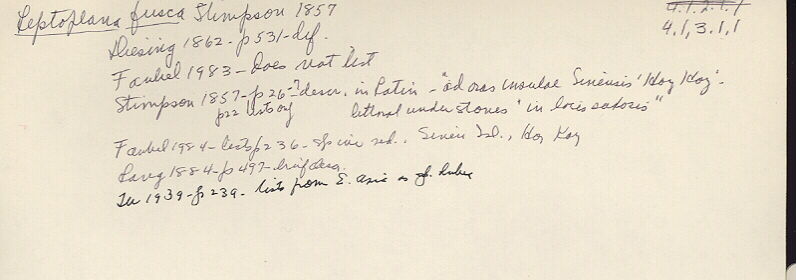 Leptoplana fusca Stimpson 1857
4.1.2.1.1
4.1,3.1,1
Diesing 1862 - p 531 - def.
Faubel 1983 - Does not list
Stimpson 1857 - p 26 -? descr. in Latin - "ad oras insulae Sinensis 'Hoy Hoy' -
p22 lists only littoral under stones "in locis"
Faubel 1984 - lists p 236 - sp inc sed., Sinen Isl., Hoy Hoy
Lang 1884 - p 497 - brief desc.
1939 - p 239 - lists from E. Asia as